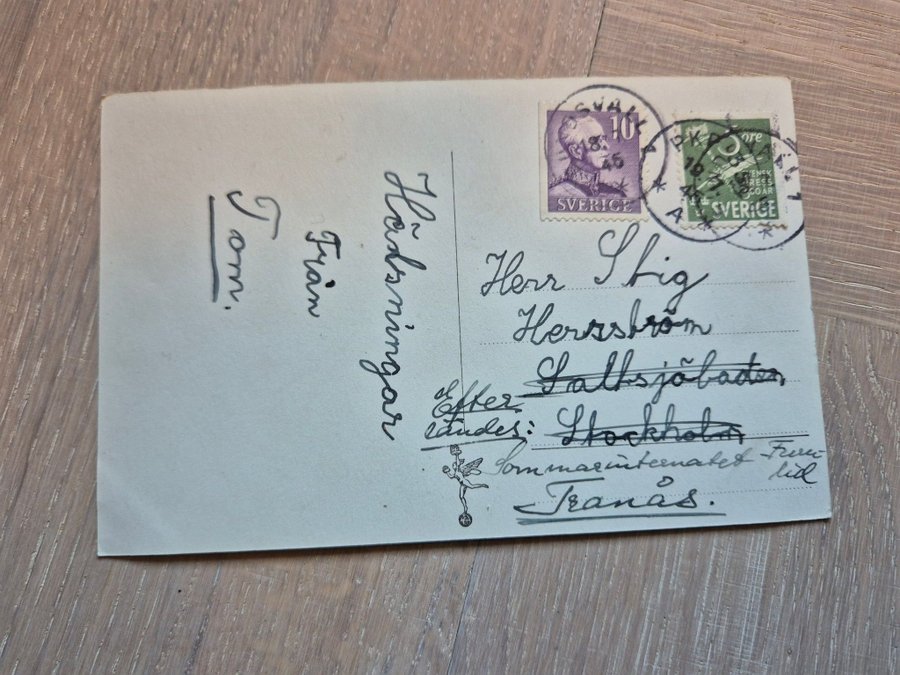 Hälsningar
Från
Tom.
10
SVERIGE
öre
SVERIGE
Herr Stig
Herrström
Saltsjöbaden
Stockholm
Efter
sändes:
Sommarinternatet
Tranås.